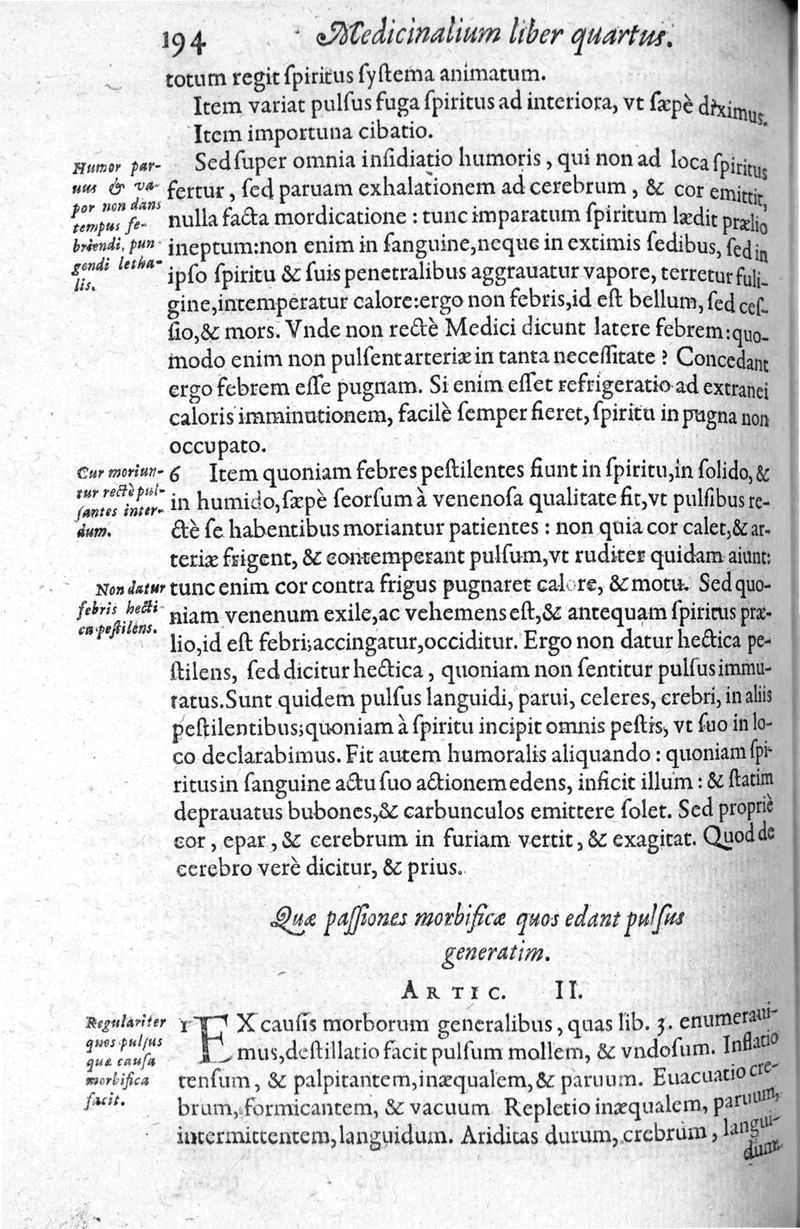 194 Medicinalium liber quartus.
totum regit ſpiritus ſyſtema animatum.
Item variat pulſus fuga ſpiritus ad interiora, vt ſæpè diximus.
Item importuna cibatio.
Sed ſuper omnia inſidiatio humoris, qui non ad loca ſpiritus
fertur, ſed paruam exhalationem ad cerebrum, & cor emittit,
nulla facta mordicatione: tunc imparatum ſpiritum lædit prælio
ineptum: non enim in ſanguine, neque in extimis ſedibus, ſed in
ipſo ſpiritu & ſuis penetralibus aggrauatur vapore, terretur fuli-
gine, intemperatur calore: ergo non febris, id eſt bellum, ſed ceſ-
ſio, & mors. Vnde non rectè Medici dicunt latere febrem: quo-
modo enim non pulſent arteriæ in tanta neceſſitate? Concedant
ergo febrem eſſe pugnam. Si enim eſſet refrigeratio ad extranei
caloris imminutionem, facilè ſemper fieret, ſpiritu in pugna non
occupato.
Humor par-
uus & va-
por non dans
tempus fe-
briendi, pun-
gendi letha-
lis.
6 Item quoniam febres peſtilentes fiunt in ſpiritu, in ſolido, &
in humido, ſæpè ſeorſum à venenoſa qualitate fit, vt pulſibus re-
ctè ſe habentibus moriantur patientes: non quia cor calet, & ar-
teriæ frigent, & contemperant pulſum, vt ruditer quidam aiunt:
tunc enim cor contra frigus pugnaret calore, & motu. Sed quo-
niam venenum exile, ac vehemens eſt, & antequam ſpiritus præ-
lio, id eſt febri, accingatur, occiditur. Ergo non datur hectica pe-
ſtilens, ſed dicitur hectica, quoniam non ſentitur pulſus immu-
tatus. Sunt quidem pulſus languidi, parui, celeres, crebri, in aliis
peſtilentibus; quoniam à ſpiritu incipit omnis peſtis, vt ſuo in lo-
co declarabimus. Fit autem humoralis aliquando: quoniam ſpi-
ritus in ſanguine actu ſuo actionem edens, inficit illum: & ſtatim
deprauatus bubones, & carbunculos emittere ſolet. Sed propriè
cor, epar, & cerebrum in furiam vertit, & exagitat. Quod de
cerebro verè dicitur, & prius.
Cur moriun-
tur rectè pul-
ſantes inter-
dum.
Non datur
febris hecti-
ca peſtilens.
Quæ paſſiones morbificæ quos edant pulſus
generatim.
ARTIC. II.
1 EX cauſis morborum generalibus, quas lib. 3. enumeraui-
mus, deſtillatio facit pulſum mollem, & vndoſum. Inflatio
tenſum, & palpitantem, inæqualem, & paruum. Euacuatio cre-
brum, formicantem, & vacuum Repletio inæqualem, paruum,
intermittentem, languidum. Ariditas durum, crebrum, langui-
dum.
Regulariter
quos pulſus
quæ cauſa
morbifica
facit.